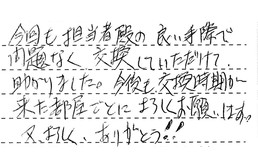 今回も担当者殿の良い手際で
問題なく交換していただけて
助かりました。今後も交換時期が
来た都度ごとによろしくお願いします。
又、よろしく、ありがとう!!